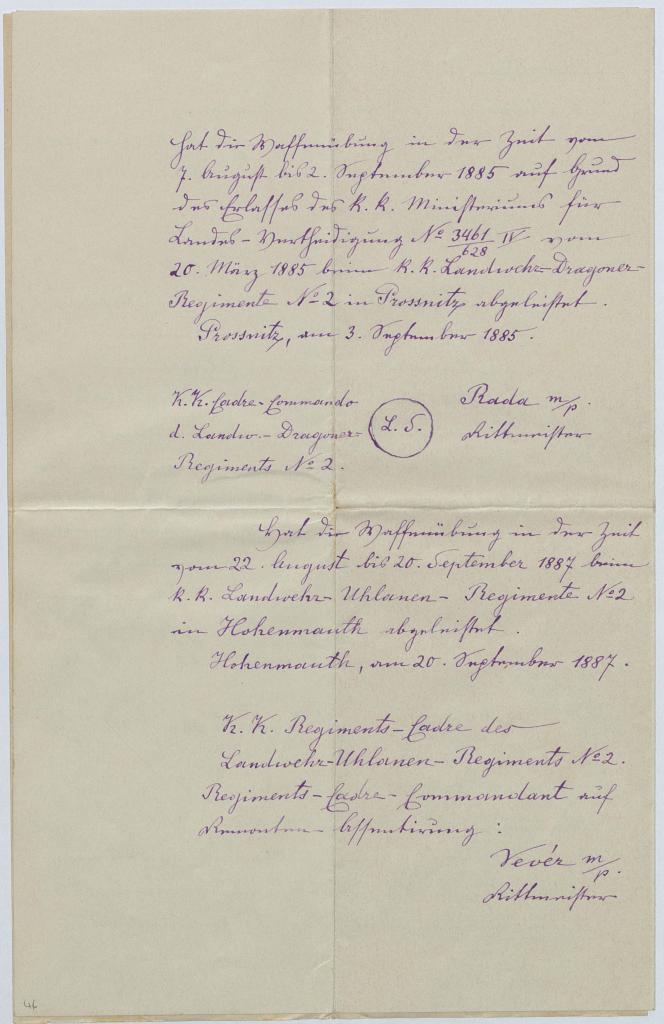 hat die Waffenübung in der Zeit vom
7. August bis 2. September 1885 auf Grund
des Erlasses des k. k. Ministeriums für
Landes-Vertheidigung No 3461/628 IV vom
20. März 1885 beim k. k. Landwehr-Dragoner-
Regimente No 2 in Prossnitz abgeleistet.
Prossnitz, am 3. September 1885.
K. K. Cadre-Commando
d. Landw.-Dragoner-
Regiments No 2.
L. S.
Rada m/p.
Rittmeister
Hat die Waffenübung in der Zeit
vom 22. August bis 20. September 1887 beim
k. k. Landwehr-Uhlanen-Regimente No 2
in Hohenmauth abgeleistet.
Hohenmauth, am 20. September 1887.
K. K. Regiments-Cadre des
Landwehr-Uhlanen-Regiments No 2.
Regiments-Cadre-Commandant auf
Remonten-Assentirung:
Vevér m/p.
Rittmeister
46